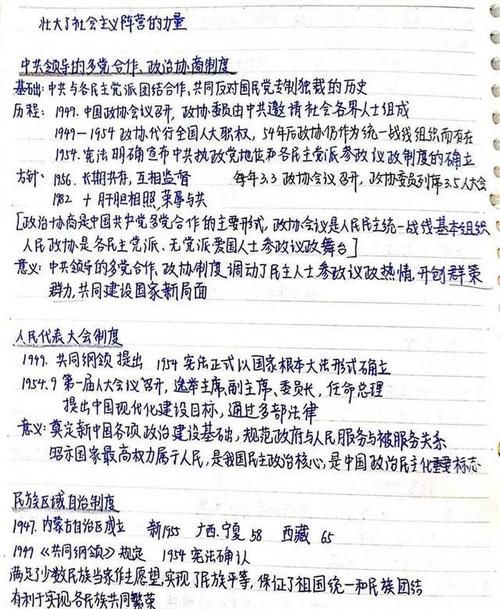 壮大了社会主义阵营的力量
中共领导的多党合作、政治协商制度
基础：中共与各民主党派团结合作，共同反对国民党专制独裁的历史
历程：1949.中国政协会议召开，政协委员由中共邀请社会各界人士组成
1949—1954政协代行全国人大职权，54年后政协仍作为统一战线组织而存在
1954.宪法明确宣布中共执政党地位和各民主党派参政议政制度的确立
方针：1956.长期共存，互相监督 每年3.3政协会议召开，政协委员列席3.5人大会
1982 + 肝胆相照，荣辱与共
[政治协商是中国共产党多党合作的主要形式，政协会议是人民民主统一战线基本组织
人民政协是各民主党派、无党派爱国人士参政议政舞台]
意义：中共领导的多党合作、政协制度调动了民主人士参政议政热情，开创群策
群力，共同建设国家新局面
人民代表大会制度
1949.共同纲领提出 1954宪法正式以国家根本大法形式确立
1954.9第一届人大会议召开，选举主席，副主席、委员长，任命总理
提出中国现代化建设目标，通过多部法律
意义：奠定新中国各项政治建设基础，规范政府与人民服务与被服务关系
昭示国家最高权力属于人民，是我国民主政治核心，是中国政治民主化重要标志
民族区域自治制度
1947.内蒙古自治区成立 新1955 广西.宁夏 58 西藏 65
1949《共同纲领》规定 1954宪法确认
满足了少数民族当家作主愿望，实现了民族平等，保证了祖国统一和民族团结
有利于实现各民族共同繁荣